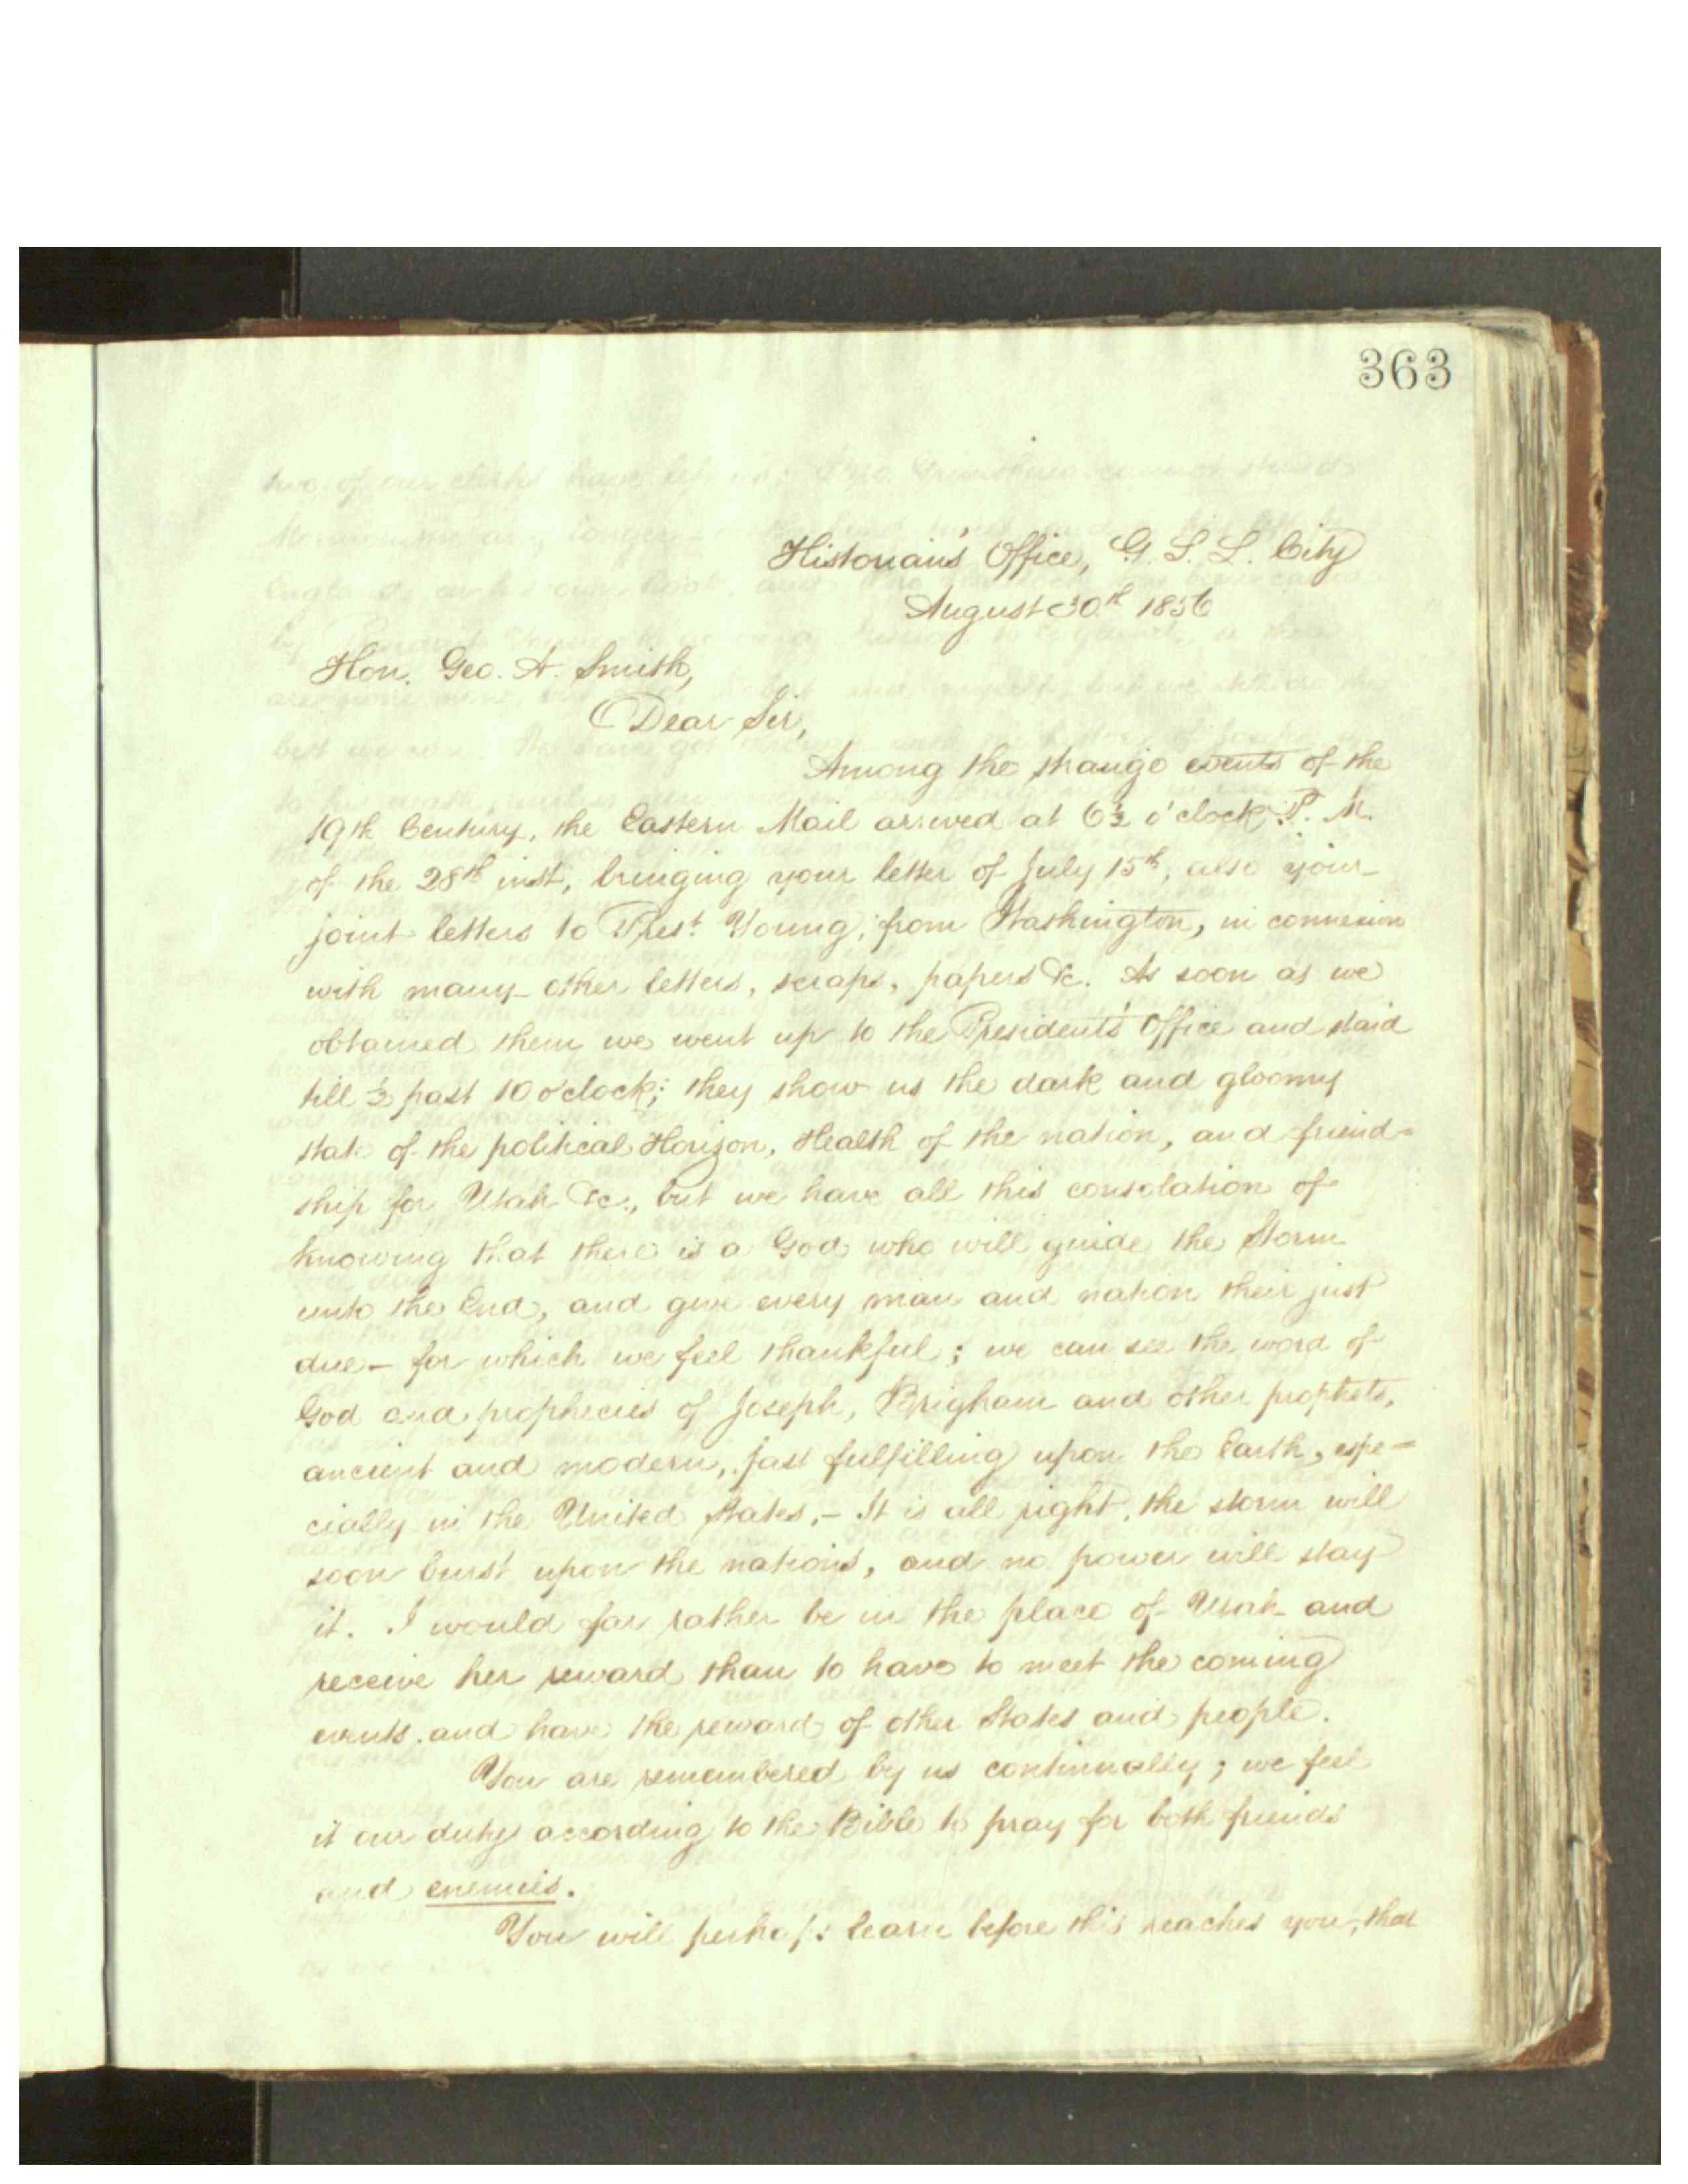 363
Historian's Office, G. S. L. City
August 30th 1856
Hon. Geo. A. Smith,
Dear Sir,
Among the strange events of the
19th Century, the Eastern Mail arrived at 6½ o'clock P. M.
of the 28th inst, bringing your letter of July 15th, also your
joint letters to Prest. Young, from Washington, in connexion
with many other letters, scraps, papers &c. As soon as we
obtained them we went up to the President's Office and staid
till ½ past 10 o'clock; they show us the dark and gloomy
state of the political Horizon, Health of the nation, and friend=
ship for Utah &c., but we have all this consolation of
knowing that there is a God who will guide the Storm
unto the End, and give every man and nation their just
due - for which we feel thankful; we can see the word of
God and prophecies of Joseph, Brigham and other prophets,
ancient and modern, fast fulfilling upon the Earth, espe=
cially in the United States, - It is all right, the storm will
soon burst upon the nations, and no power will stay
it. I would far rather be in the place of Utah and
receive her reward than to have to meet the coming
events, and have the reward of other States and people.
You are remembered by us continually; we feel
it our duty according to the Bible to pray for both friends
and enemies.
You will perhaps learn before this reaches you, that